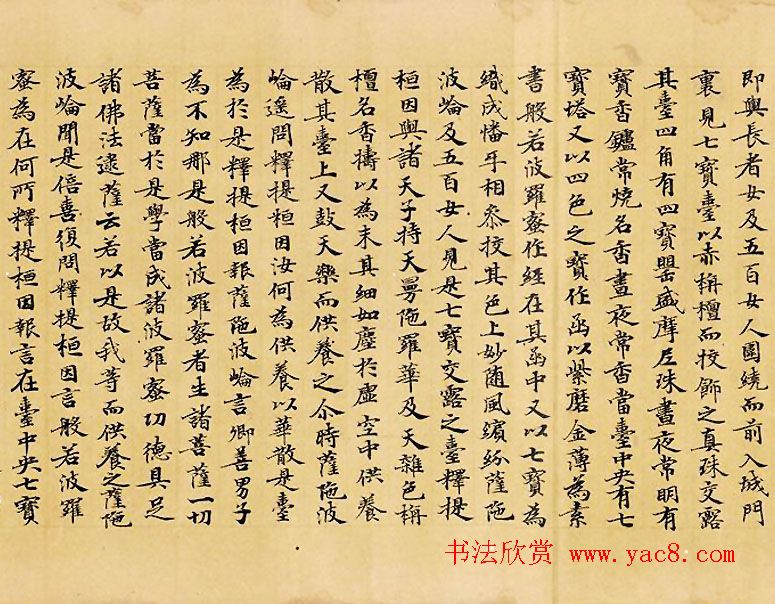 即與長者女及五百女人圍繞而前入城門
裏見七寶臺以赤栴檀而挍飾之真珠交露
其臺四角有四寶罌盛摩尼珠晝夜常明有
寶香鑪常燒名香晝夜常香當臺中央有七
寶塔又以四色之寶作函以紫磨金薄為素
書般若波羅蜜作經在其函中又以七寶為
織成幡牙相叅挍其色上妙隨風繽紛薩陁
波崘及五百女人見是七寶交露之臺釋提
桓因與諸天子持天曼陁羅華及天雜色栴
檀名香擣以為末其細如塵於虛空中供養
散其臺上又鼓天樂而供養之尒時薩陁波
崘遥問釋提桓因汝何為供養以華散是臺
為於是釋提桓因報薩陁波崘言卿善男子
為不知那是般若波羅蜜者生諸菩薩一切
菩薩當於是學當成諸波羅蜜功德具足
諸佛法逮薩云若以是故我等而供養之薩陁
波崘聞是倍喜復問釋提桓因言般若波羅
蜜為在何所釋提桓因報言在臺中央七寶
书法欣赏 www.yac8.com